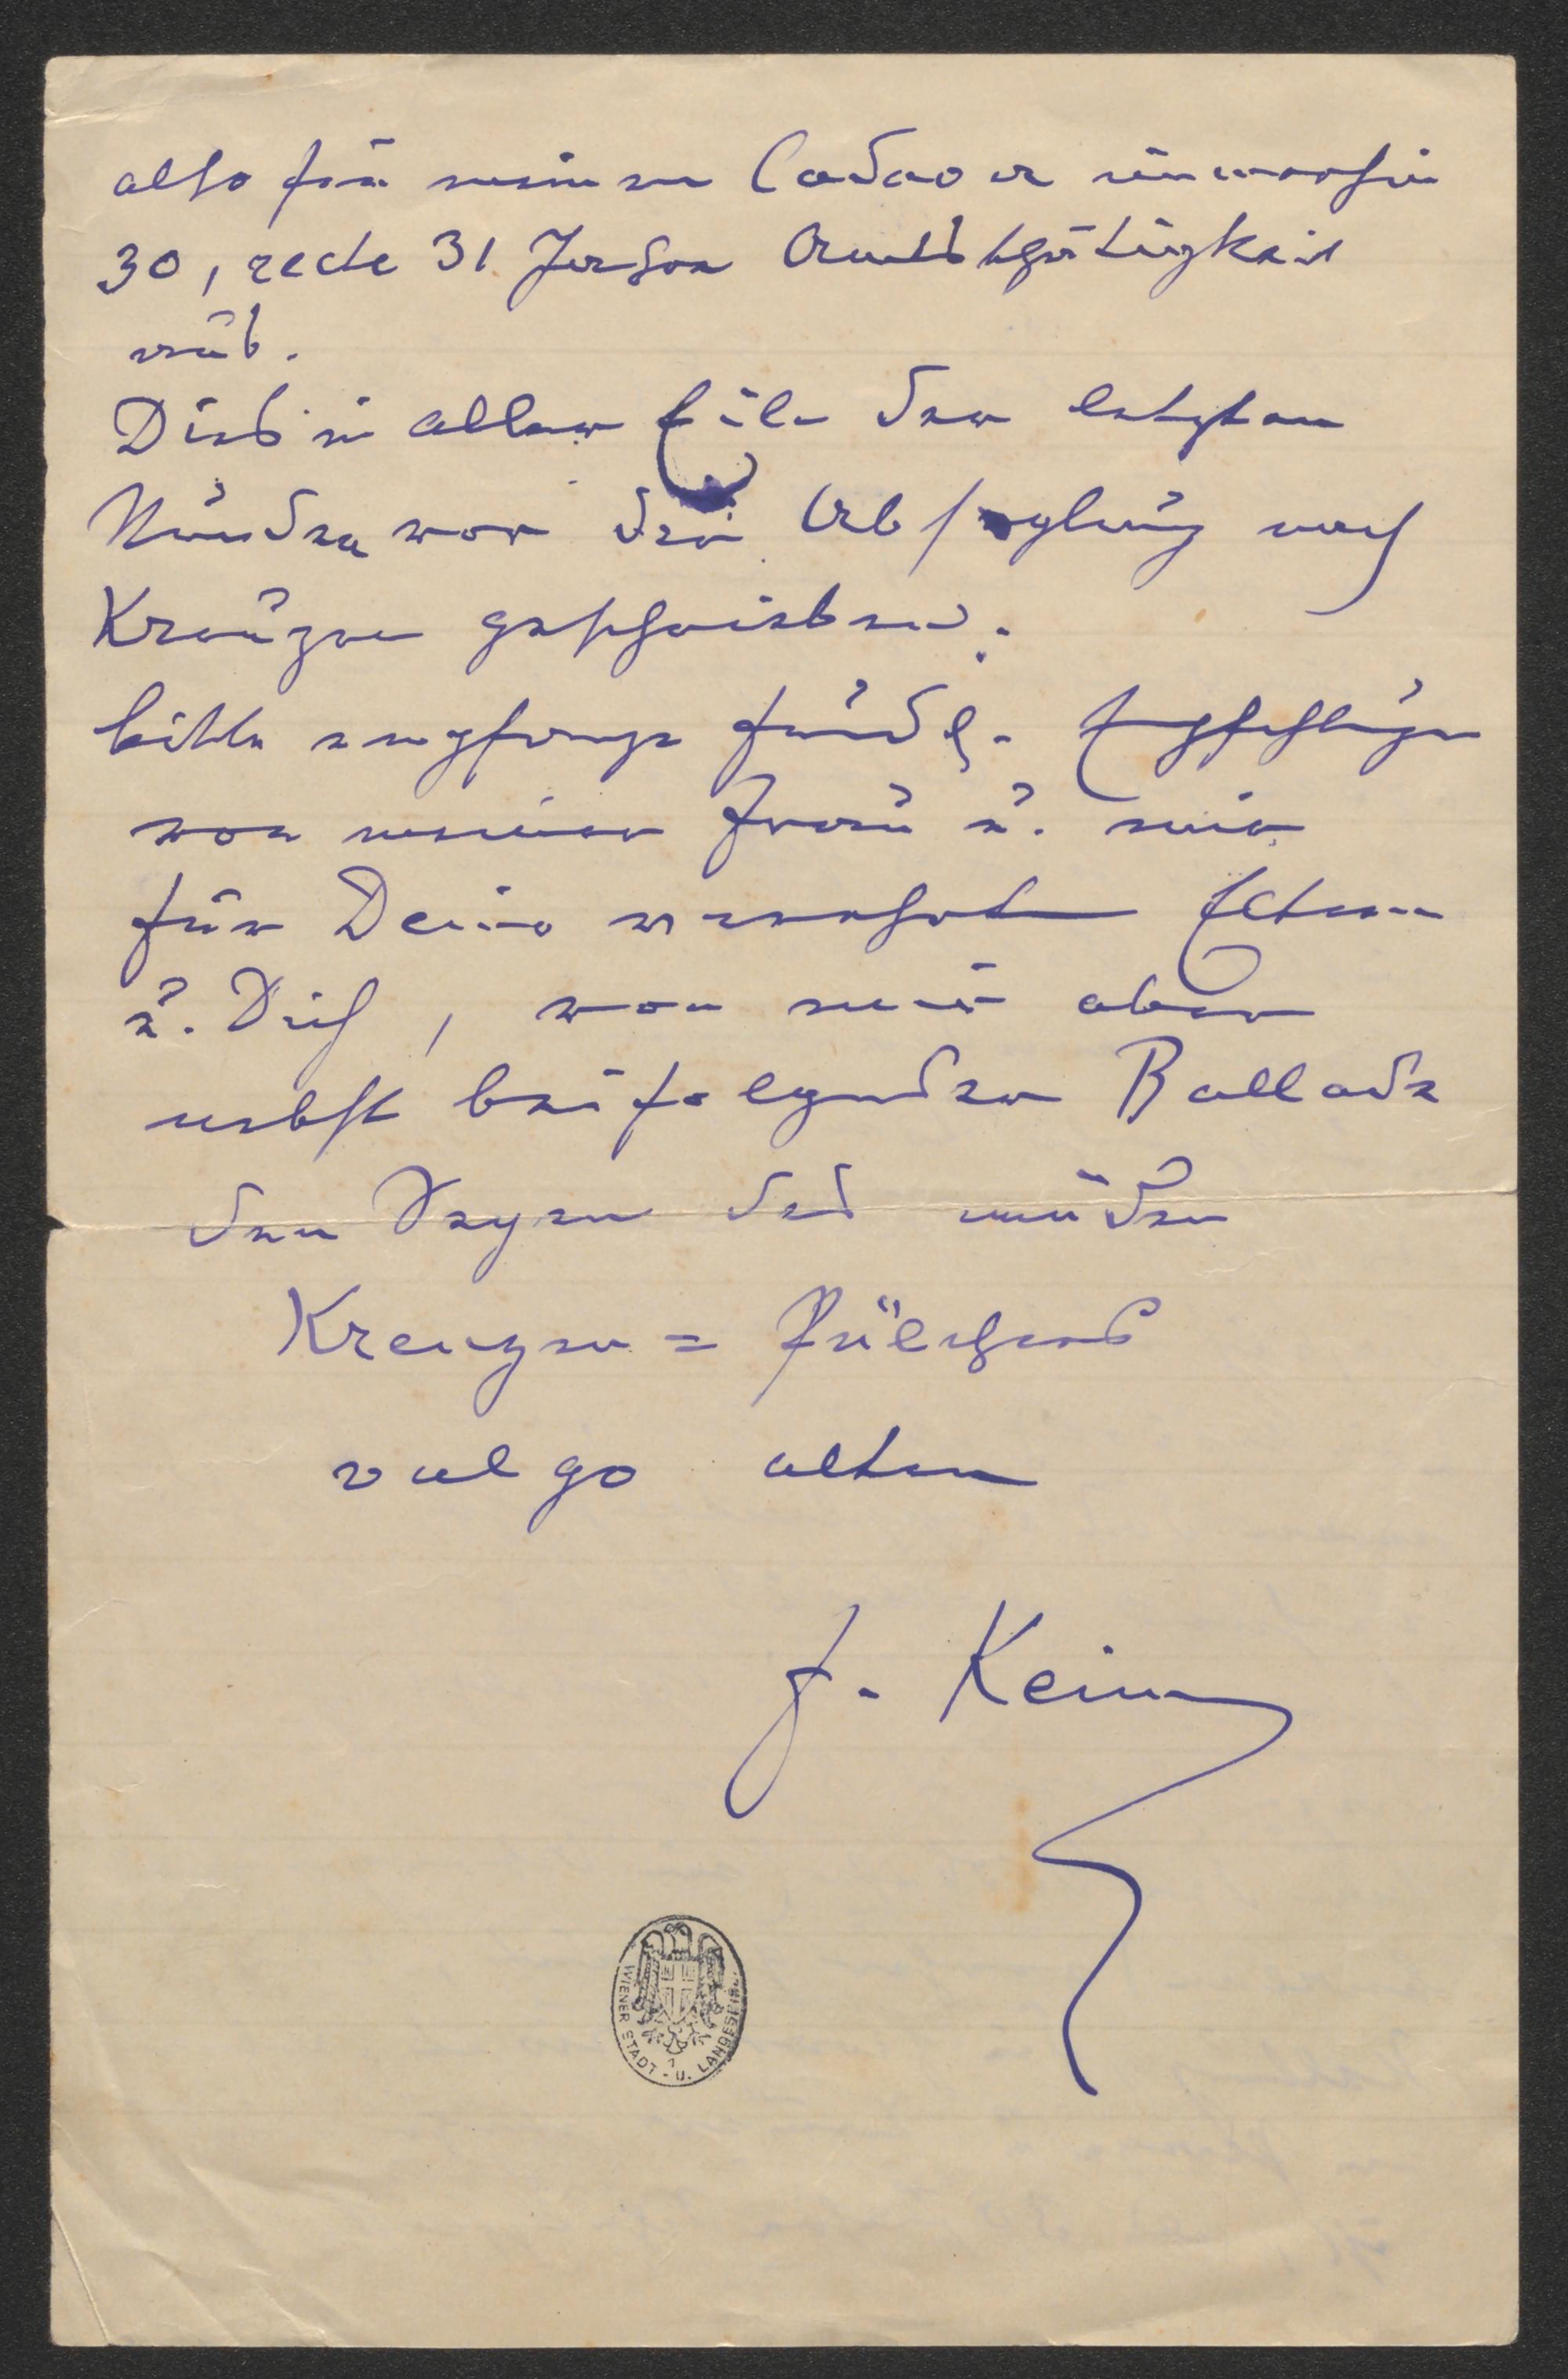 also für meinen Cadaver immerhin
30, recte 31 Jahre Amtsthätigkeit
aus.
Dies in aller Eile der letzten
Stunden vor der Absegelung nach
Kreuzen geschrieben.
bitte empfange freundl. Empfehlungen
von meiner Frau u. mir
für Deine verehrten Eltern
u. Dich, von mir aber
nebst beifolgender Ballade
den Segen des müden
Kreuzen=Pülchers
vulgo alten
F. Keim
WIENER STADT - U. LANDESBIB.